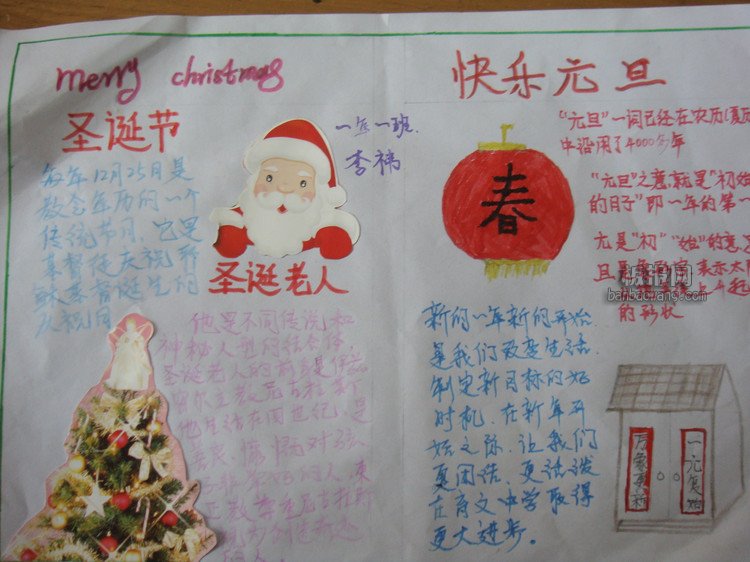 merry christmas
圣诞节
每年12月25日是
教会年历的一个
传统节日,它是
基督徒庆祝耶
稣基督诞生的
庆祝日
一年一班.
李祎
圣诞老人
他是不同传说和
神秘人型的结合体,
圣诞老人的前身是
他生活在四世纪,是
慷慨对
的人,
快乐元旦
“元旦”一词已经在农历(夏历
中沿用了4000多年
“元旦”之意,就是“初始
的日子”即一年的第一
元是“初”“始”的意
且
表示太阳
的形状
春
新的一年新的开始
是我们改变生活
制定新目标的好
时机,在新年开
始之际,让我们
更团结、更活泼
在育文中学取得
更大进步。
万象更新
一元复始
板报网
banbaowang.com